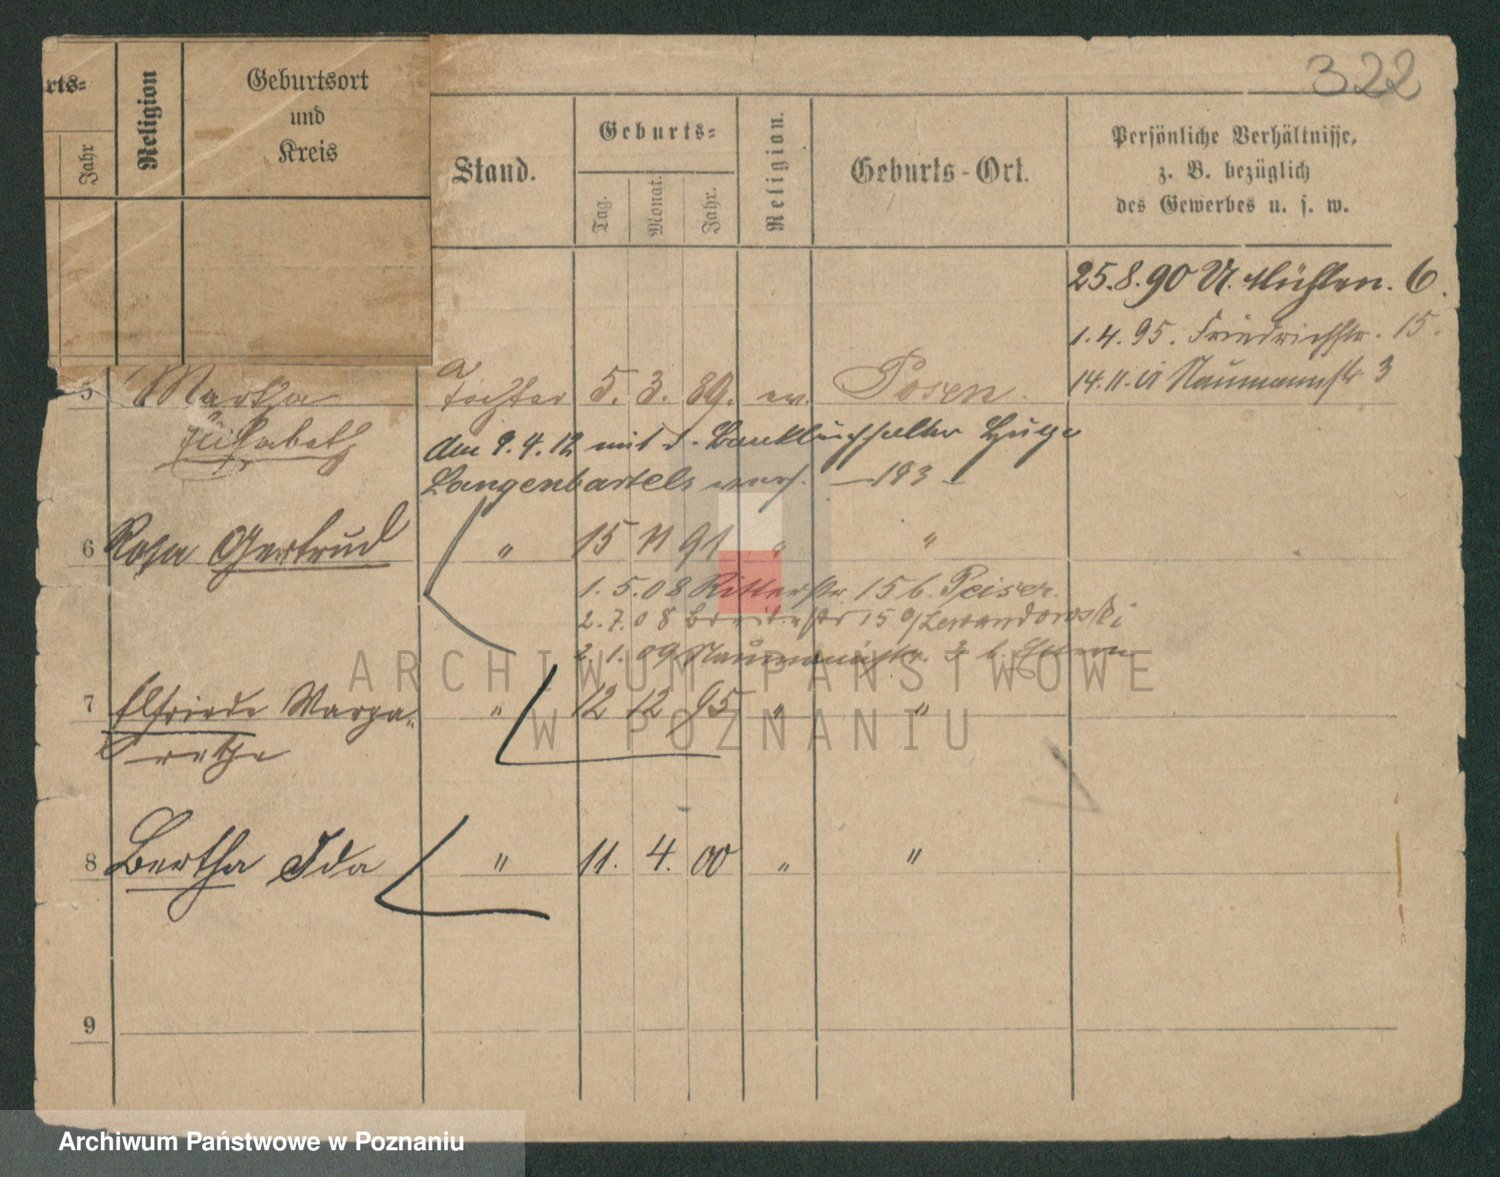 322
rts=
Jahr
Religion
Geburtsort
und
Kreis
Stand.
Geburts=
Tag.
Monat.
Jahr.
Religion.
Geburts-Ort.
Persönliche Verhältnisse,
z. B. bezüglich
des Gewerbes u. s. w.
25.8.90 U. Mühlen. 6.
1.4.95. Friedrichstr. 15.
14.11. Naumannstr 3
5 Martha Tochter 5. 3. 89. ev. Posen.
Elisabeth
den 9.4.12 mit d. Bankbuchhalter Hugo
Langenbartels verh. —193—
6 Rosa Gertrud " 15 11 91 " "
1.5.08 Ritterstr 15 b. Peiser.
2.7.08 Breitestr 15 b/Lewandowski
2.1.09 Naumannstr. 3 b. Eltern
7 Elfriede Marga- " 12 12 95 " "
rethe
8 Bertha Ida " 11. 4. 00 " "
9
ARCHIWUM PAŃSTWOWE
W POZNANIU
Archiwum Państwowe w Poznaniu